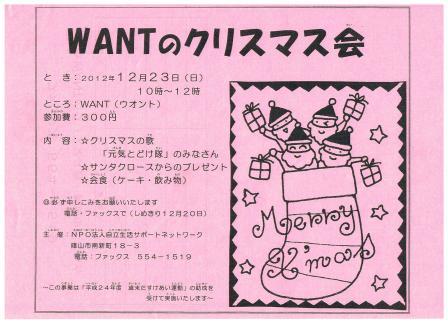 WANTのクリスマス会
とき：2012年12月23日（日）
10時～12時
ところ：WANT（ウオント）
参加費：300円
内容：☆クリスマスの歌
「元気とどけ隊」のみなさん
☆サンタクロースからのプレゼント
☆会食（ケーキ・飲み物）
◎必ず申しこみをお願いいたします
電話・ファックスで（しめきり12月20日）
主催：NPO法人自立生活サポートネットワーク
篠山市南新町18－3
電話：ファックス 554－1519
～この事業は「平成24年度 歳末たすけあい運動」の助成を
受けて実施いたします～
Merry
X'mas